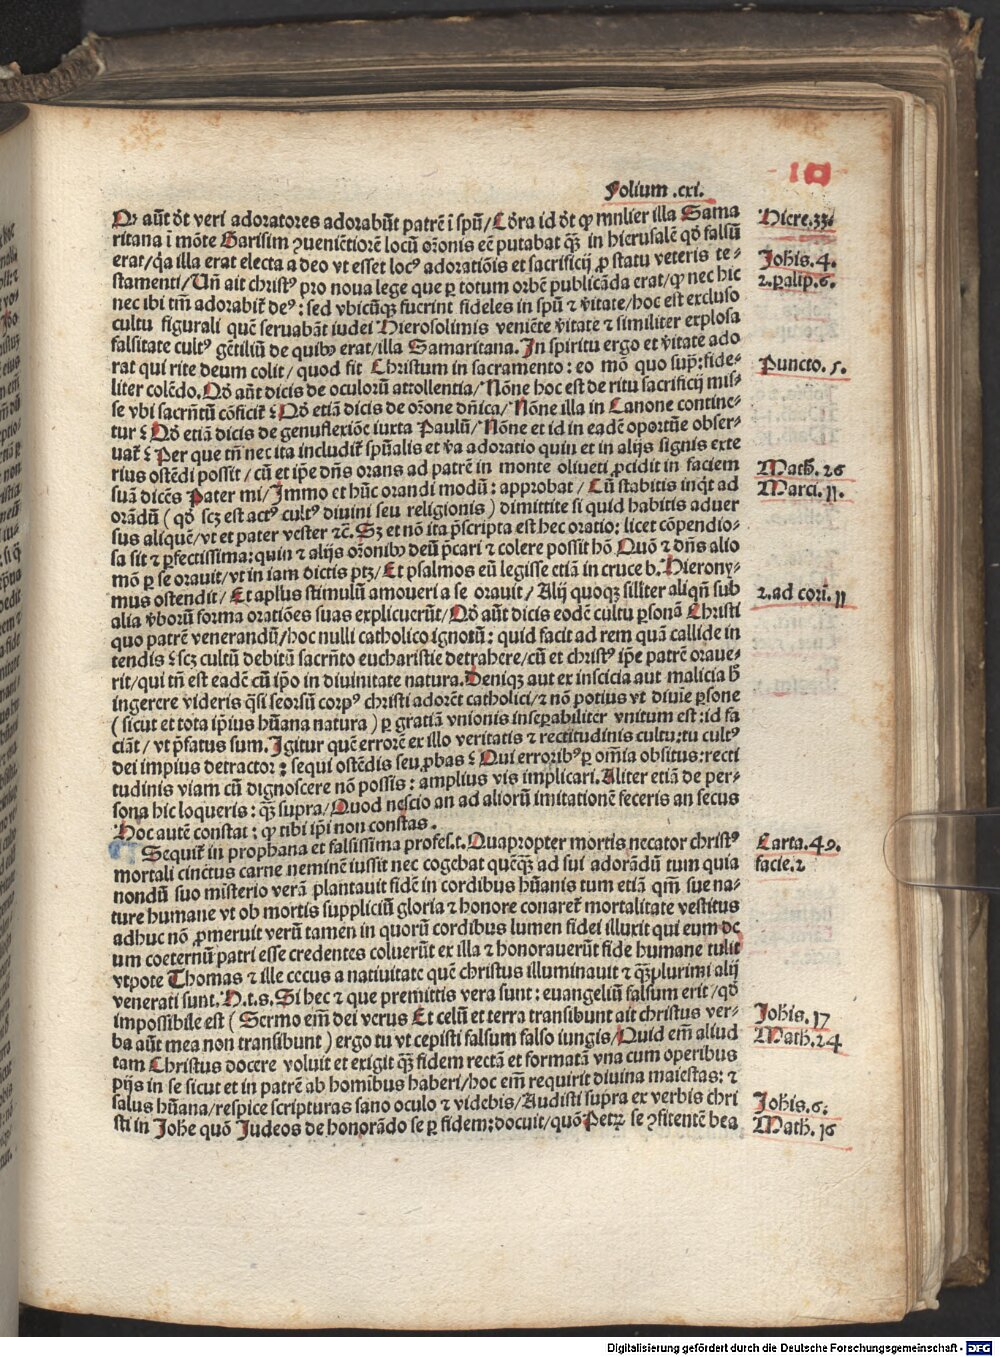 Folium .cxi.
Qꝫ aūt dt̄ veri adoratores adorabūt patrē ī spū/Cōra id dt̄ ꝙ mulier illa Sama
ritana ī mōte Garisim ꝯueniētiorē locū or̄onis eē putabat qꝫ in hierusalē qd̄ falsū
erat/qa illa erat electa a deo vt esset locꝰ adoratiōis et sacrificij ꝓ statu veteris te⸗
stamenti/Un̄ ait christꝰ pro noua lege que per totum orbē publicāda erat/ꝙ nec hic
nec ibi tm̄ adorabit̄ deꝰ: sed vbicūqꝫ fuerint fideles in spū ⁊ v̄itate/hoc est excluso
cultu figurali quē seruabāt iudei Hierosolimis veniēte v̄itate ⁊ similiter explosa
falsitate cultꝰ gētiliū de quibꝰ erat/illa Samaritana. In spiritu ergo et v̄itate ado
rat qui rite deum colit/ quod fit Christum in sacramento: eo mō quo supꝰ: fide⸗
liter colēdo. Qd̄ aūt dicis de oculorū attollentia/Nōne hoc est de ritu sacrificij mis⸗
se vbi sacrm̄tū cōficit̄? Qd̄ etiā dicis de or̄one dn̄ica/Nōne illa in Canone contine⸗
tur? Qd̄ etiā dicis de genuflexiōe iuxta Paulū/Nōne et id in eadē oportūe obser⸗
uat̄? Per que tn̄ nec ita includit̄ spūalis et v̄a adoratio quin et in alijs signis exte
rius ostēdi possit/ cū et ip̄e dn̄s orans ad patrē in monte oliueti ꝓcidit in faciem
suā dicēs Pater mi/Immo et hūc orandi modū: approbat/Cū stabitis inq̄t ad
orādū ( qd̄ scꝫ est actꝰ cultꝰ diuini seu religionis ) dimittite si quid habitis aduer
sus aliquē/vt et pater vester ⁊c̄. Sꝫ et nō ita p̄scripta est hec oratio: licet cōpendio⸗
sa sit ⁊ ꝑfectissima: quin ⁊ alijs or̄onibꝰ deū p̄cari ⁊ colere possit hō Quō ⁊ dn̄s alio
mō ꝑ se orauit/vt in iam dictis ptꝫ/Et psalmos eū legisse etiā in cruce b. Hierony⸗
mus ostendit/Et aplus stimulū amoueri a se orauit/ Alij quoqꝫ siliter aliqn̄ sub
alia v̄borū forma oratiōes suas explicuerūt/Qd̄ aūt dicis eodē cultu ꝑsonā Christi
quo patrē venerandū/hoc nulli catholico ignotū: quid facit ad rem quā callide in
tendis? scꝫ cultū debitū sacrn̄to eucharistie detrahere/cū et christꝰ ip̄e patrē oraue⸗
rit/qui tn̄ est eadē cū ip̄o in diuinitate natura. Deniqꝫ aut ex inscicia aut malicia
ingerere videris q̄si seorsū corpꝰ christi adorēt catholici/⁊ nō potius vt diuīe ꝑsone
( sicut et tota ip̄ius hūana natura ) ꝑ gratiā vnionis inseꝑabiliter vnitum est: id fa
ciāt/ vt p̄fatus sum. Igitur quē errorē ex illo veritatis ⁊ rectitudinis cultu: tu cultꝰ
dei impius detractor: sequi ostēdis seu ꝓbas? Qui erroribꝰ ꝑ om̄ia obsitus: recti
tudinis viam cū dignoscere nō possis: amplius vis implicari. Aliter etiā de per⸗
sona hic loqueris: qꝫ supra/Quod nescio an ad aliorū imitationē feceris an secus
Hoc autē constat: ꝙ tibi ip̄i non constas.
Sequit̄ in prophana et falsissima profes.t. Quapropter mortis necator christꝰ
mortali cinctus carne neminē iussit nec cogebat quēqꝫ ad sui adorādū tum quia
nondū suo misterio verā plantauit fidē in cordibus hūanis tum etiā qm̄ sue na⸗
ture humane vt ob mortis suppliciū gloria ⁊ honore conaret̄ mortalitate vestitus
adhuc nō ꝓmeruit verū tamen in quorū cordibus lumen fidei illuxit qui eum de
um coeternū patri esse credentes coluerūt ex illa ⁊ honorauerūt fide humane tulit
vtpote Thomas ⁊ ille cecus a natiuitate quē christus illuminauit ⁊ qꝫplurimi alij
venerati sunt. H.t.s. Si hec ⁊ que premittis vera sunt: euangeliū falsum erit/qd̄
impossibile est ( Sermo em̄ dei verus Et celū et terra transibunt ait christus ver⸗
ba aūt mea non transibunt ) ergo tu vt cepisti falsum falso iungis/Quid em̄ aliud
tam Christus docere voluit et exigit qꝫ fidem rectā et formatā vna cum operibus
pijs in se sicut et in patrē ab hom̄ibus haberi/hoc em̄ requirit diuina maiestas: ⁊
salus hūana/respice scripturas sano oculo ⁊ videbis/Audisti supra ex verbis chri
sti in Joh̄e quō Judeos de honorādo se ꝑ fidem: docuit/quō Petrꝰ se ꝯfitentē bea
Hiere.33.
Joh̄is.4.
2.ꝑalip.6.
Puncto.5.
Math.26
Marci.11.
2.ad cori.11
Carta.49.
facie.2
Joh̄is.17
Math.24
Joh̄is.6.
Math.16
Digitalisierung gefördert durch die Deutsche Forschungsgemeinschaft - DFG